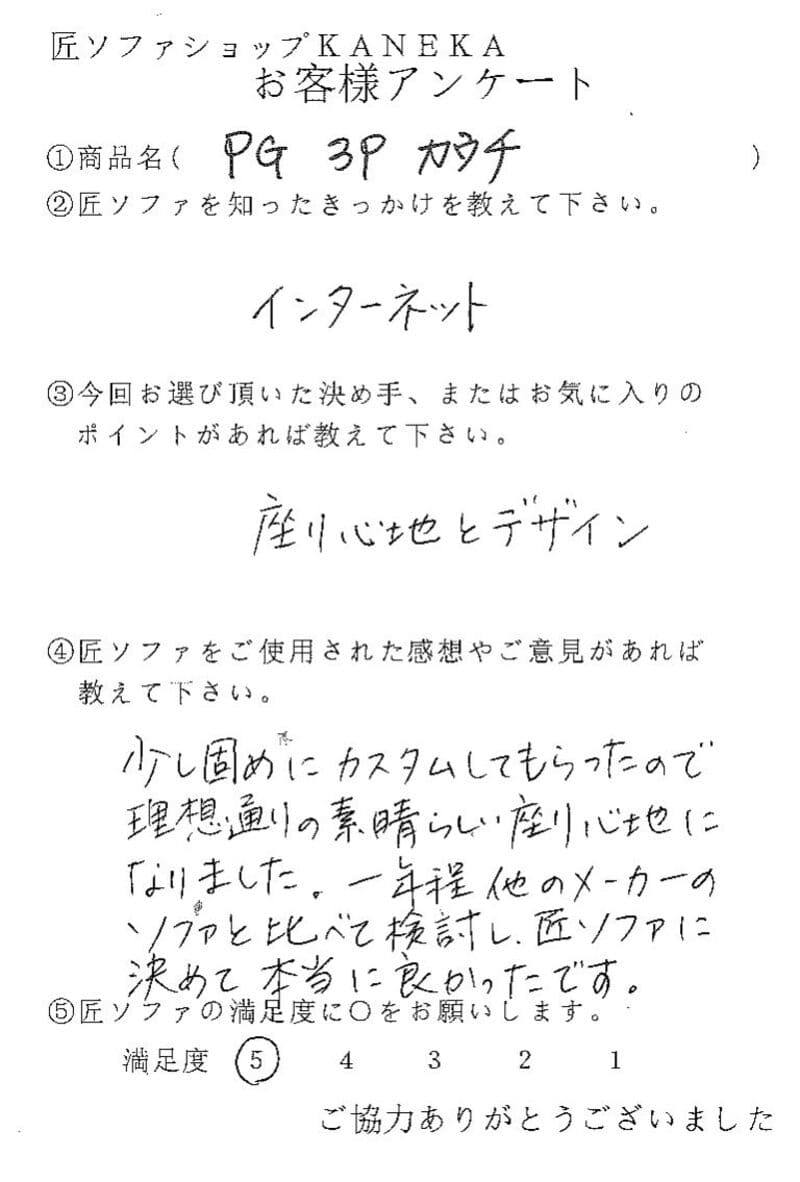 匠ソファショップKANEKA
お客様アンケート
①商品名( PG 3P カウチ )
②匠ソファを知ったきっかけを教えて下さい。
インターネット
③今回お選び頂いた決め手、またはお気に入りの
ポイントがあれば教えて下さい。
座り心地とデザイン
④匠ソファをご使用された感想やご意見があれば
教えて下さい。
少し固めにカスタムしてもらったので
理想通りの素晴らしい座り心地に
なりました。一年程他のメーカーの
ソファと比べて検討し、匠ソファに
決めて本当に良かったです。
⑤匠ソファの満足度に○をお願いします。
満足度 5 4 3 2 1
ご協力ありがとうございました